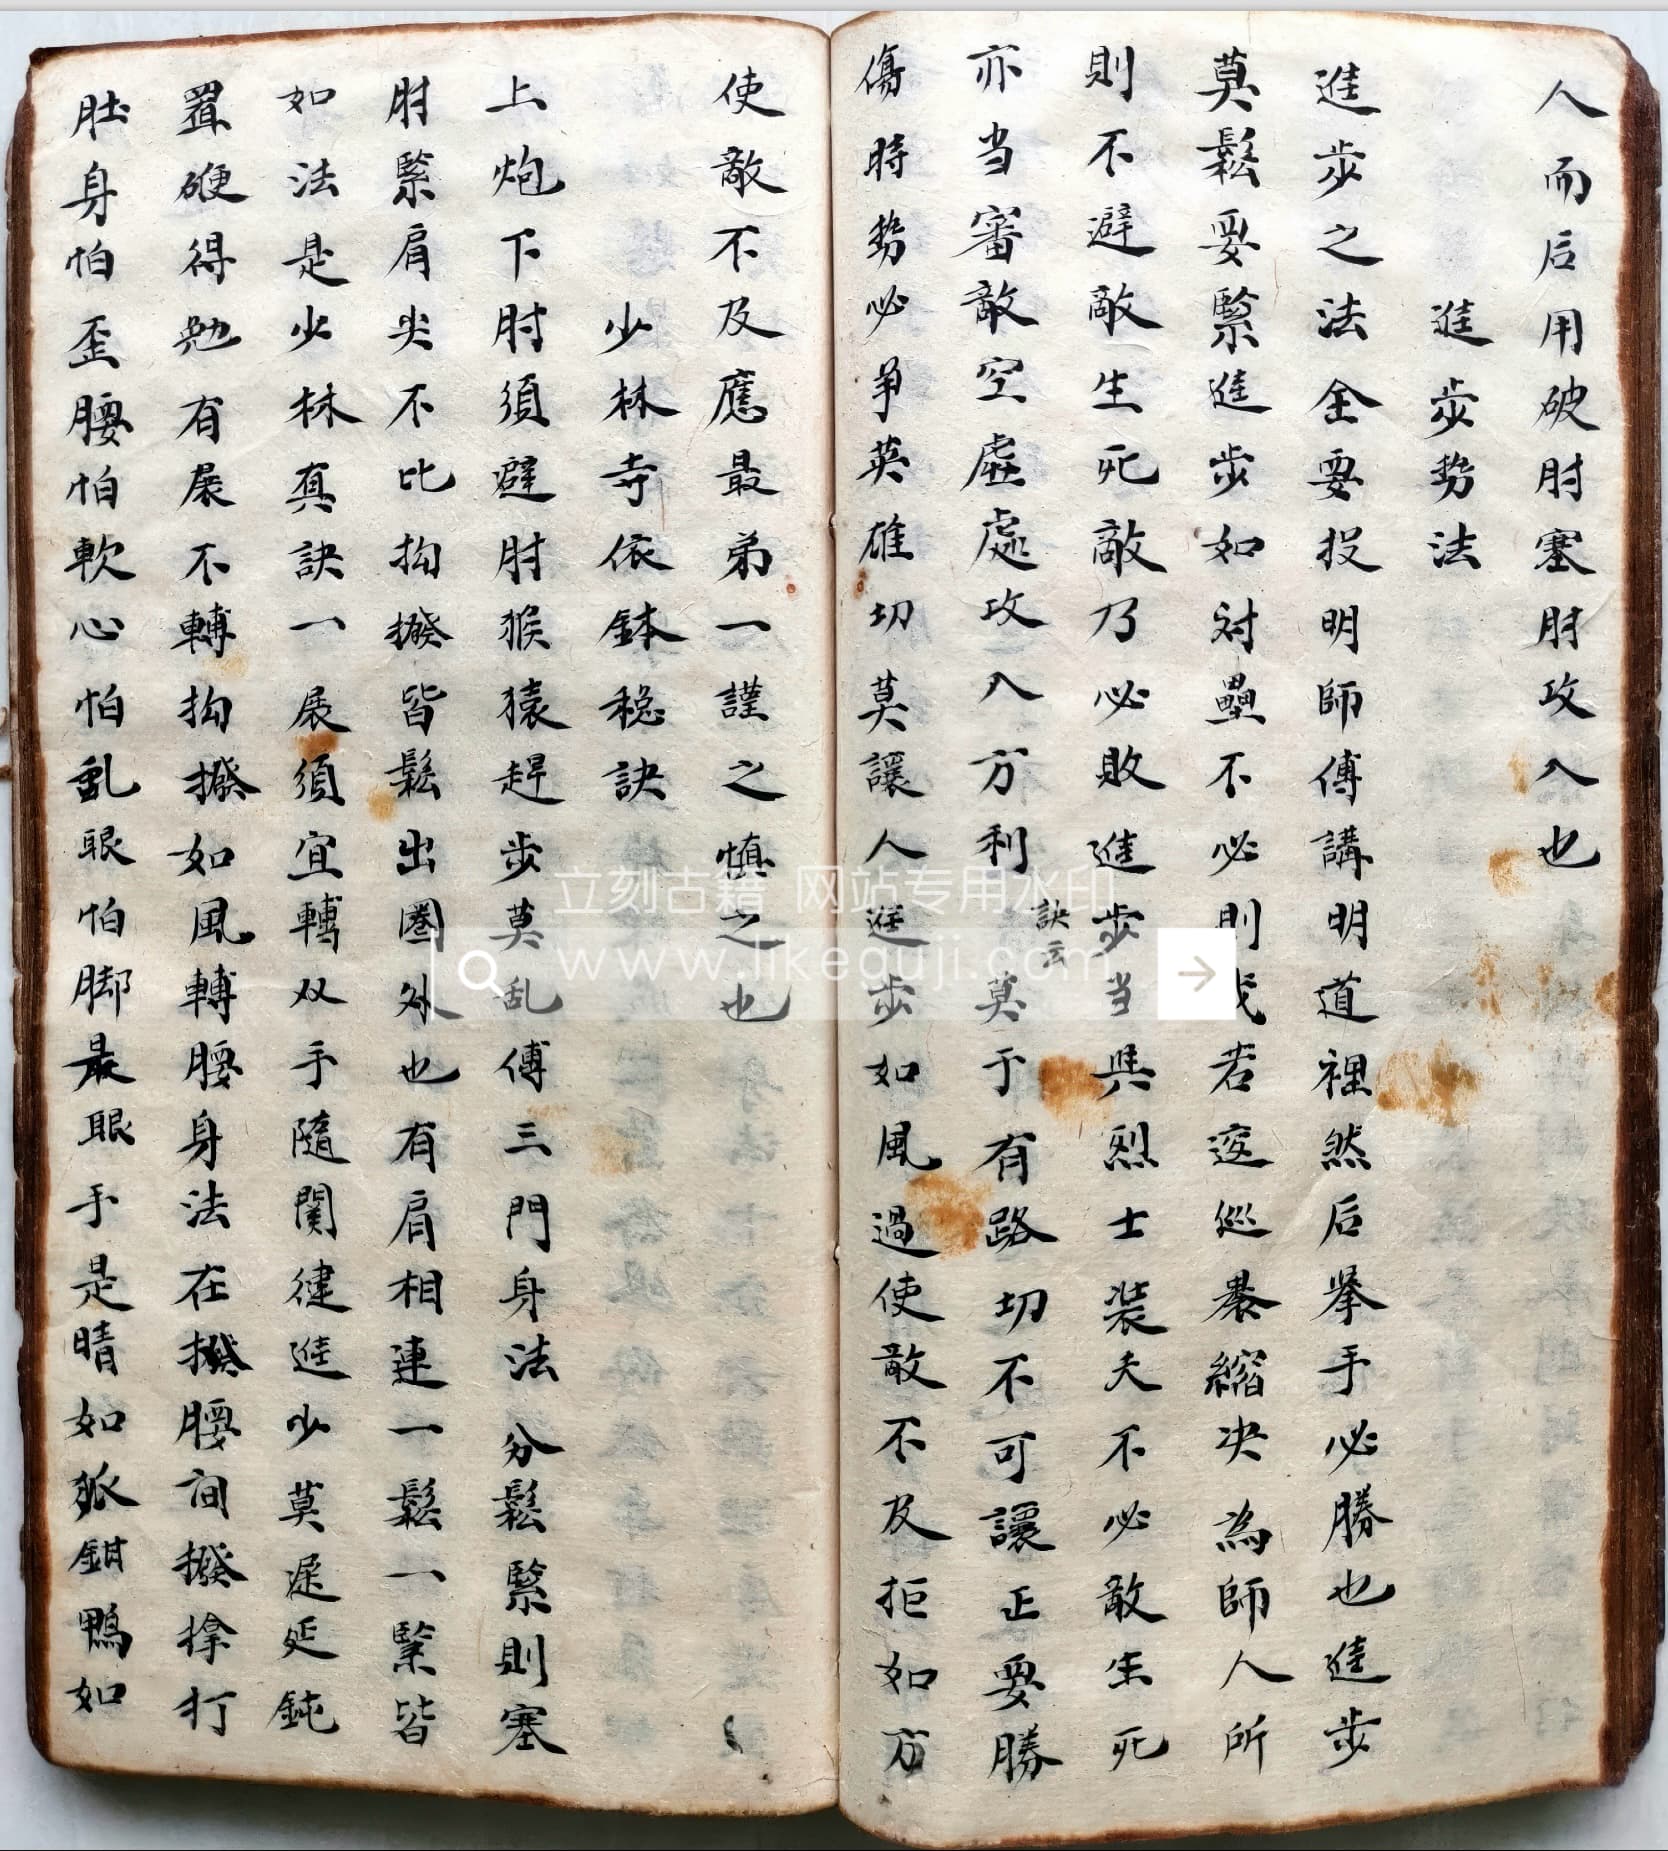 人而后用破肘塞肘攻入也
進步勢法
進步之法全要投明師傅講明道裡然后挙手必勝也進步
莫鬆要緊進步如対壘不必則我若逡巡畏縮决為師人所
則不避敵生死敵乃必敗進步当與烈士装夫不必敵生死
亦当審敵空虛處攻入方利訣云莫于有路切不可讓正要勝
傷時勢必争英雄切莫讓人進步如風過使敵不及拒如方
使敵不及應最弟一謹之慎之也
少林寺依鉢穏訣
上炮下肘須避肘猴猿趕步莫乱傅三門身法分鬆緊則塞
肘緊肩尖不比抅撥皆鬆出圈外也有肩相連一鬆一緊皆
如法是少林真訣一展須宜轉双手隨関健進少莫遲延鈍
置硬得勉有展不轉抅撥如風轉腰身法在撥腰间撥拿打
肚身怕歪腰怕軟心怕乱眼怕脚最眼手是睛如狐鉗鴨如
立刻古籍 网站专用水印
www.likeguji.com